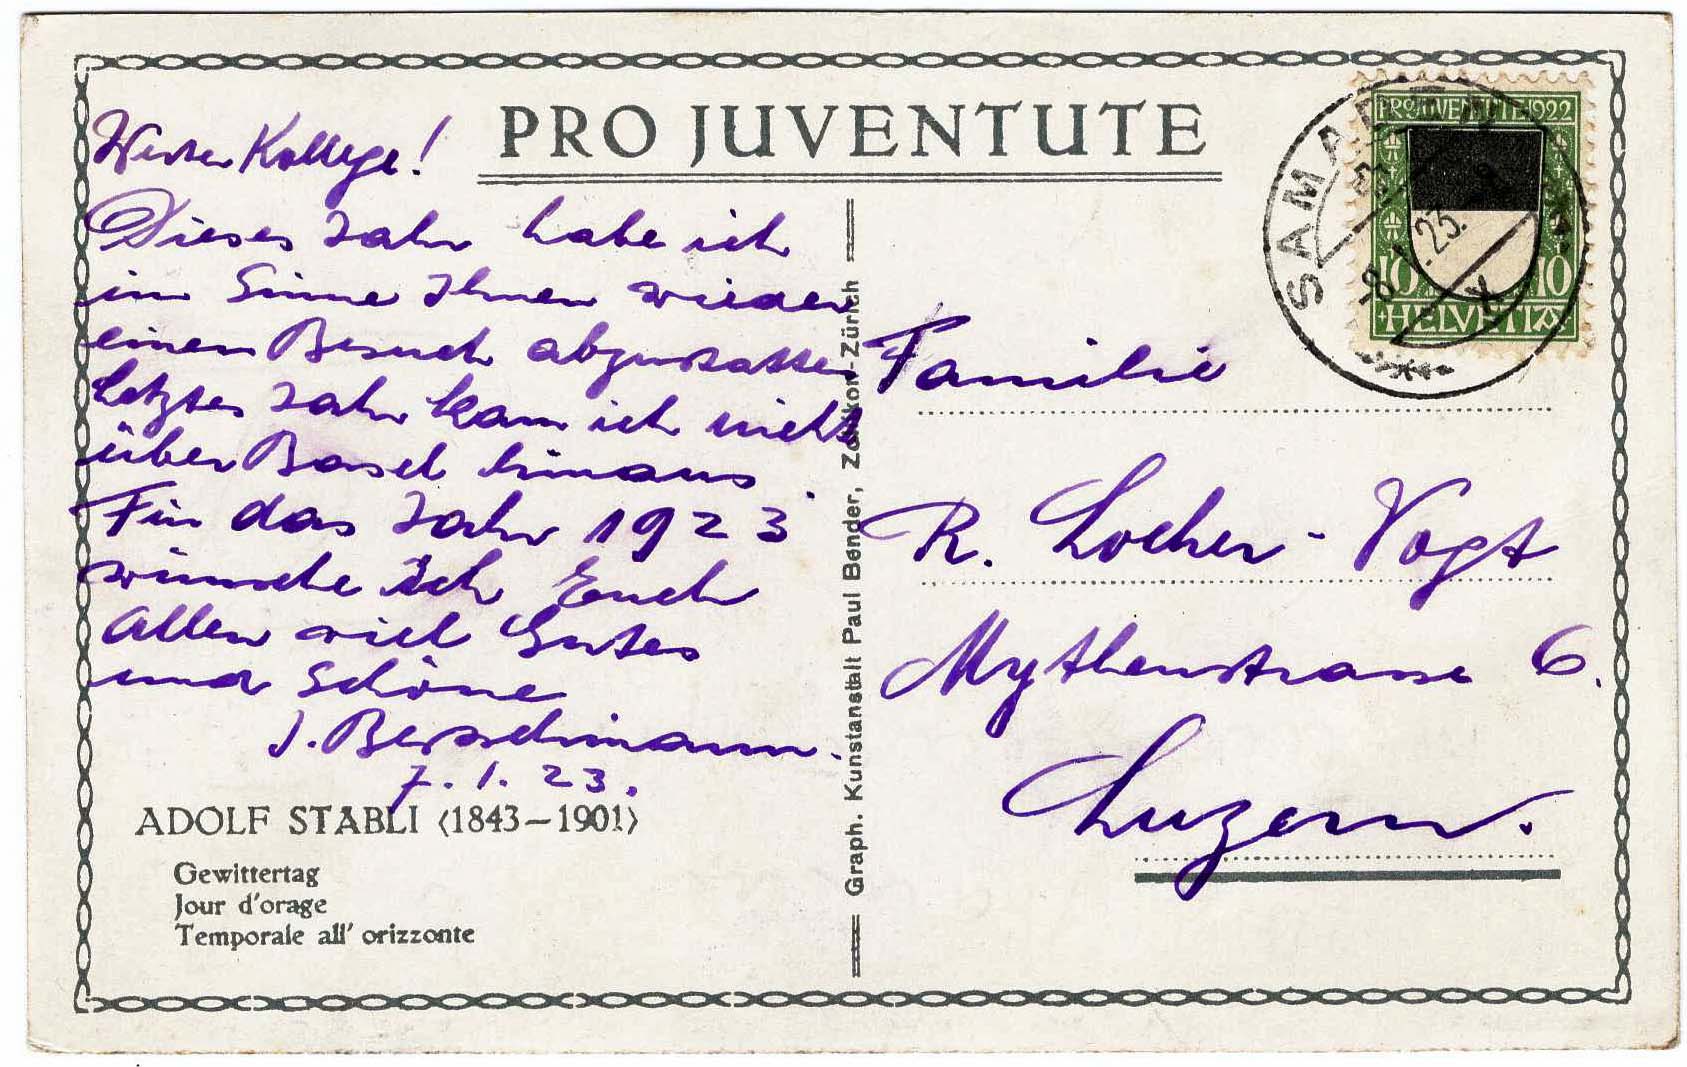 PRO JUVENTUTE
Werter Kollege!
Dieses Jahr habe ich
im Sinne Ihnen wieder
einen Besuch abzustatten
Letztes Jahr kam ich nicht
über Basel hinaus.
Für das Jahr 1923
wünsche ich Euch
Allen viel Gutes
und Schöne
7. 1. 23.
ADOLF STÄBLI (1843–1901)
Gewittertag
Jour d'orage
Temporale all' orizzonte
Graph. Kunstanstalt Paul Bender, Zollikon-Zürich
PRO JUVENTUTE 1922
10 10
HELVETIA
SAMADEN
Familie
R. Locher-Vogt
Mythenstrasse 6.
Luzern.